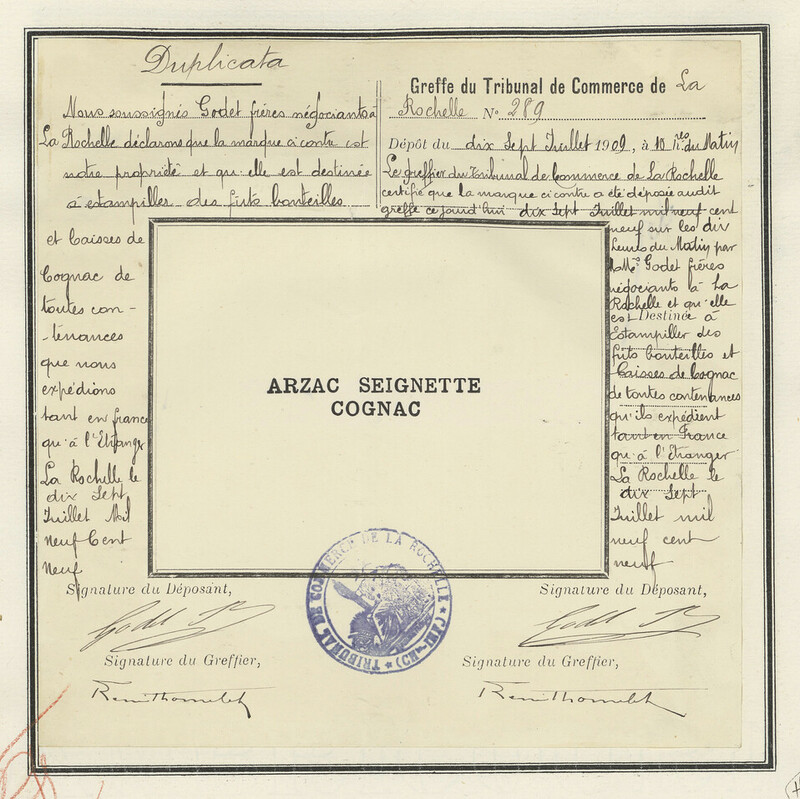 Duplicata
Nous soussignés Godet frères négociants à
La Rochelle déclarons que la marque ci contre est
notre propriété et qu'elle est destinée
à estampilles des futs bouteilles
et Caisses de
Cognac de
toutes con-
-tenances
que nous
expédions
tant en france
qu'à l'Etranger
La Rochelle le
dix Sept
Juillet Mil
neuf Cent
Neuf
Greffe du Tribunal de Commerce de La
Rochelle N° 289
Dépôt du dix Sept Juillet 1909, à 10 hres du Matin
Le greffier du Tribunal de Commerce de La Rochelle
certifie que la marque ci contre a été déposée audit
greffe ce jourd'hui dix Sept Juillet mil neuf cent
neuf sur les dix
heures du Matin par
MM. Godet frères
négociants à La
Rochelle et qu'elle
est Destinée à
Estampiller des
futs bouteilles et
Caisses de Cognac
de toutes contenances
qu'ils expédient
tant en France
qu'à l'Etranger
La Rochelle le
dix Sept
Juillet mil
neuf cent
neuf
ARZAC SEIGNETTE
COGNAC
TRIBUNAL DE COMMERCE DE LA ROCHELLE * (CH.-INF.) *
Signature du Déposant,
Godet Fres
Signature du Greffier,
Signature du Déposant,
Godet Fres
Signature du Greffier,